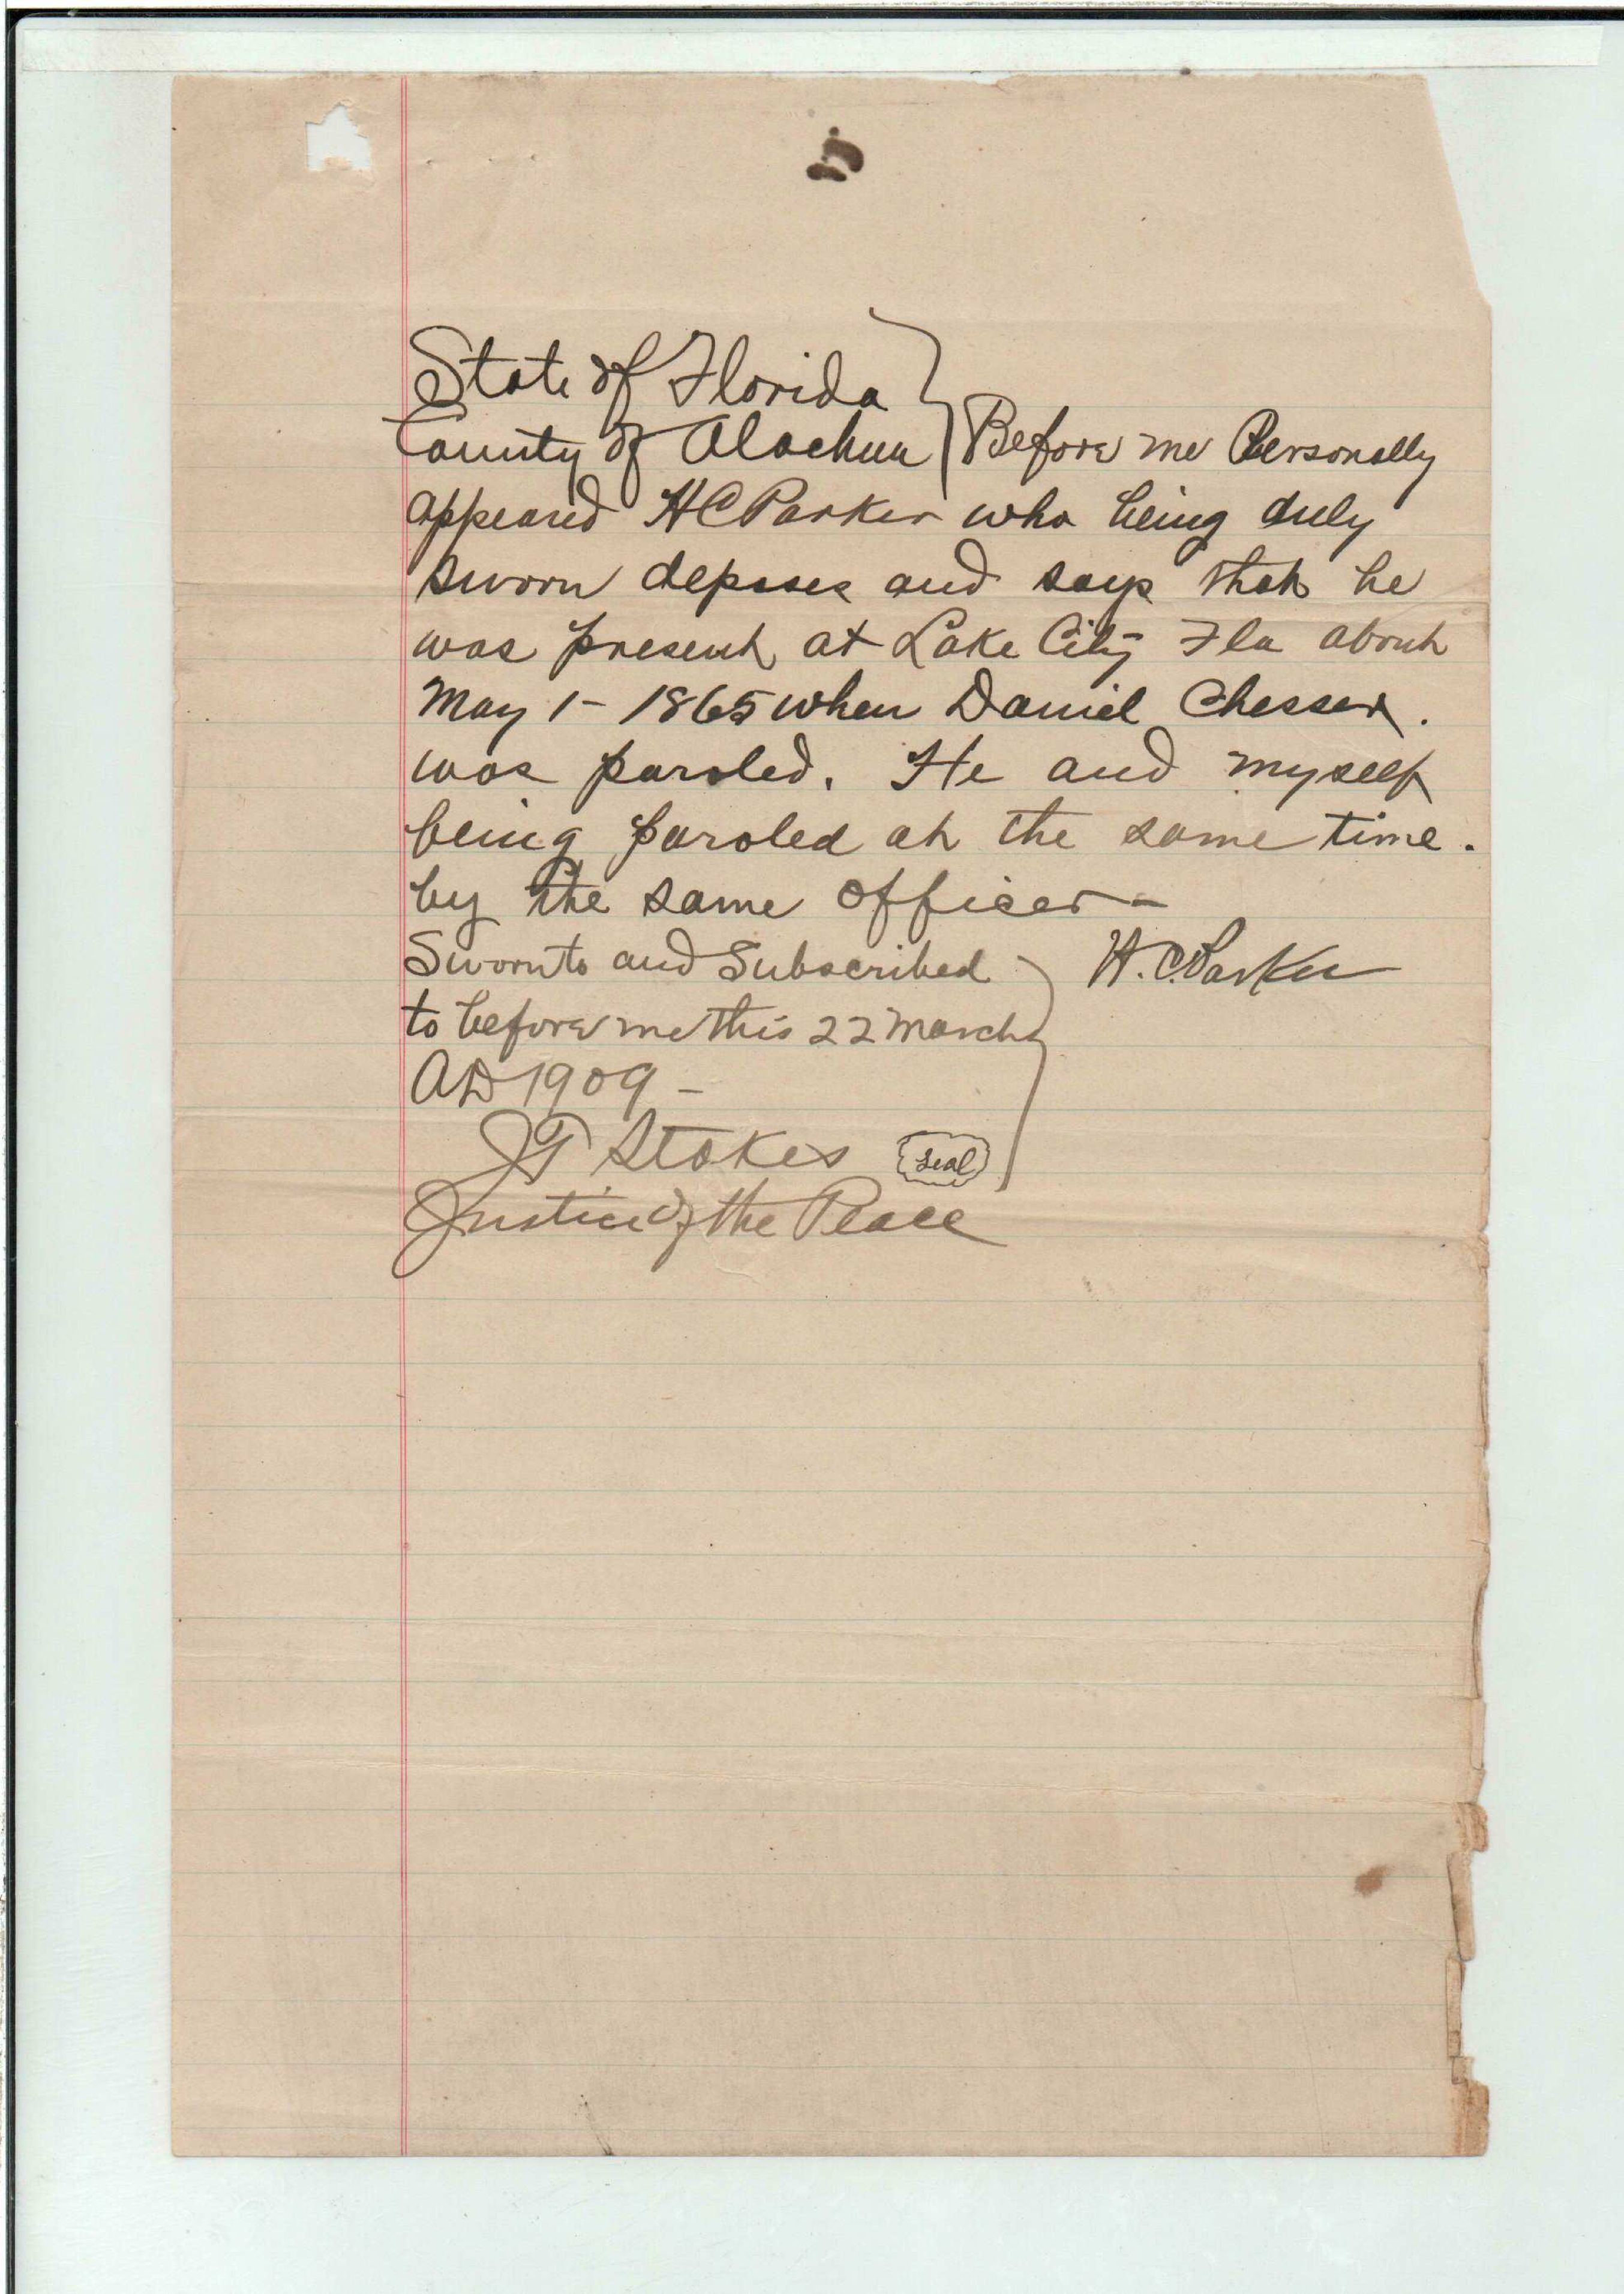 State of Florida
County of Alachua } Before me Personally
appeared H C Parker who being duly
sworn deposes and says that he
was present at Lake City Fla about
May 1 - 1865 when Daniel Chesser.
was paroled. He and myself
being paroled at the same time.
by the same officer -
Sworn to and Subscribed } H. C. Parker
to before me this 22 March
AD 1909 -
J T Stokes seal
Justice of the Peace